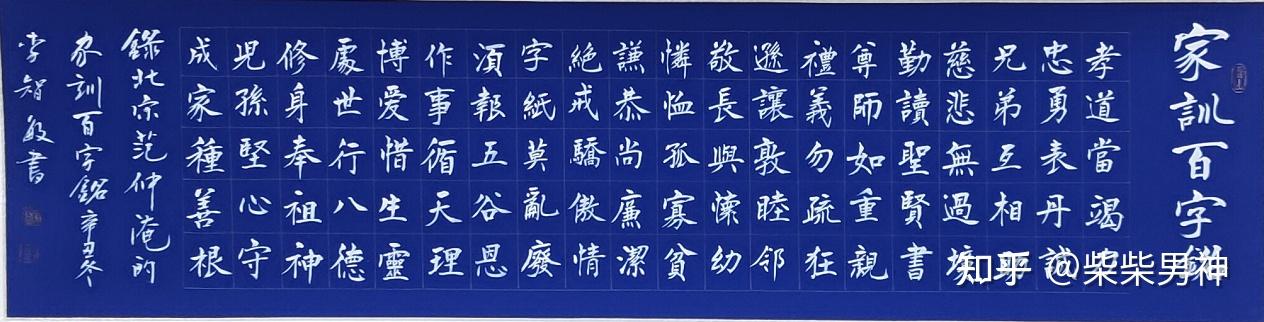 家訓百字銘
孝道當竭
忠勇表丹誠
兄弟互相
慈悲無過境
勤讀聖賢書
尊師如重親
禮義勿疏狂
遜讓敦睦邻
敬長與懷幼
憐恤孤寡貧
謙恭尚廉潔
絕戒驕傲情
字紙莫亂廢
須報五谷恩
作事循天理
博爱惜生靈
處世行八德
修身奉祖神
兒孫堅心守
成家種善根
錄北宗范仲淹的
家訓百字銘辛丑冬
李智敏書
知乎 @柴柴男神